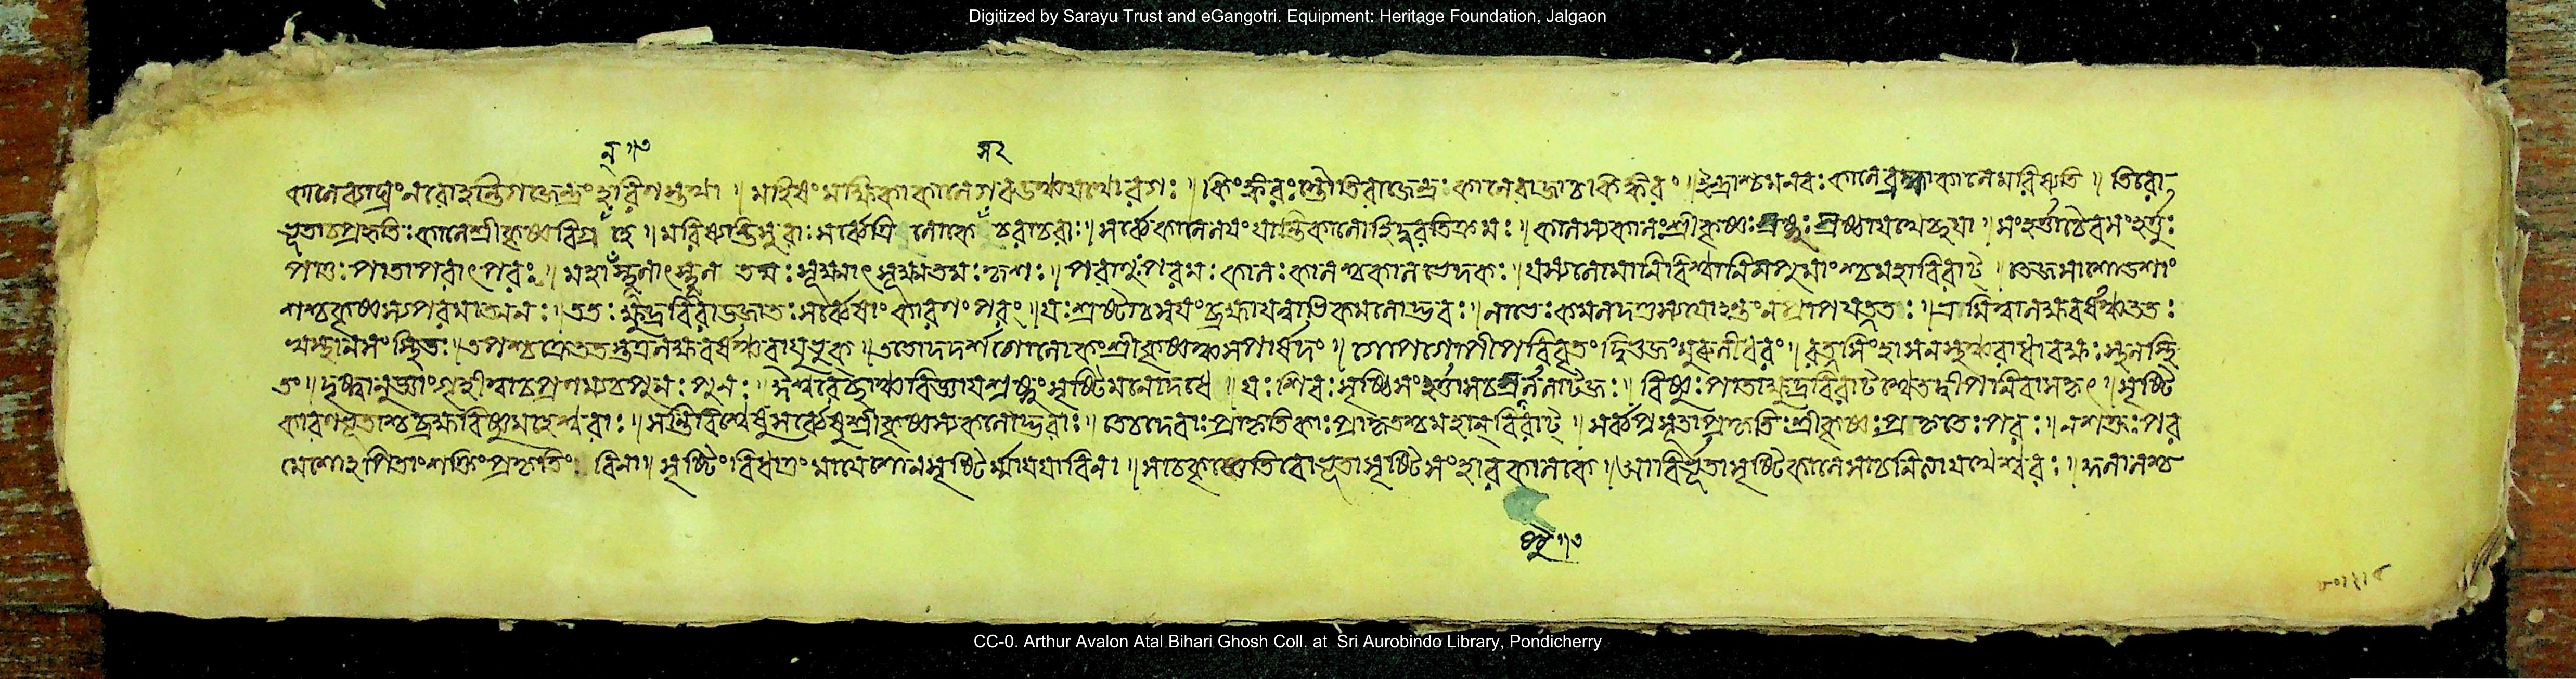 Digitized by Sarayu Trust and eGangotri. Equipment: Heritage Foundation, Jalgaon
কালে ব্যাঘ্রং নরো হন্তি গজেন্দ্রং হরিণস্তথা ॥ মহিষং মক্ষিকা কালে গরুড়ঞ্চ যথোরগঃ ॥ কিঙ্করঃ স্তৌতি রাজেন্দ্রং কালে রাজা চ কিঙ্করং ॥ ইন্দ্রাশ্চ মনবঃ কালে ব্রহ্মা কালে মরিষ্যতি ॥ তিরো
ভূতা চ প্রকৃতিঃ কালে শ্রীকৃষ্ণবিগ্রহে ॥ মরিষ্যন্তি সুরাঃ সর্ব্বে ত্রিলোকে চরাচরাঃ ॥ সর্ব্বে কালে লয়ং যান্তি কালো হি দুরতিক্রমঃ ॥ কালস্য কালঃ শ্রীকৃষ্ণঃ স্রষ্টুঃ স্রষ্টা যথেচ্ছয়া ॥ সংহর্ত্তা চৈব সংহর্ত্তুঃ
পাতুঃ পাতা পরাৎপরঃ ॥ মহাস্থূলাৎ স্থূলতমঃ সূক্ষ্মাৎ সূক্ষ্মতমঃ কৃশঃ ॥ পরমাণুপরমঃ কালঃ কালশ্চ কালভেদকঃ ॥ যস্য লোমানি বিশ্বানি স পুমাংশ্চ মহাবিরাট্ ॥ তেজসা ষোড়শাং
শশ্চ কৃষ্ণস্য পরমাত্মনঃ ॥ ততঃ ক্ষুদ্রবিরাড়্জাতঃ সর্ব্বেষাং কারণং পরং ॥ যঃ স্রষ্টা চ স্বয়ং ব্রহ্মা যন্নাভিকমলোদ্ভবঃ ॥ নাভেঃ কমলদণ্ডস্য যোহন্তং ন প্রাপ যত্নতঃ ॥
ততো দদর্শ গোলোকং শ্রীকৃষ্ণঞ্চ সপার্ষদং ॥ গোপগোপীপরিবৃতং দ্বিভুজং মুরলীধরং ॥ রত্নসিংহাসনস্থঞ্চ রাধাবক্ষঃস্থলস্থি
তং ॥ দৃষ্ট্বানুজ্ঞাং গৃহীত্বা চ প্রণম্য চ পুনঃ পুনঃ ॥ ঈশ্বরেচ্ছাঞ্চ বিজ্ঞায় স্রষ্টুং সৃষ্টিং মনো দধে ॥ যঃ শিবঃ সৃষ্টিসংহর্ত্তা স চ স্রষ্টুর্ললাটজঃ ॥ বিষ্ণুঃ পাতা ক্ষুদ্রবিরাট্ শ্বেতদ্বীপনিবাসকৃৎ ॥ সৃষ্টি
কারণভূতাশ্চ ব্রহ্মবিষ্ণুমহেশ্বরাঃ ॥ সন্তি বিশ্বেষু সর্ব্বেষু শ্রীকৃষ্ণস্য কলোদ্ভবাঃ ॥ তেঽপি দেবাঃ প্রাকৃতিকাঃ প্রাকৃতশ্চ মহান্ বিরাট্ ॥ সর্ব্বপ্রসূতা প্রকৃতিঃ শ্রীকৃষ্ণঃ প্রকৃতেঃ পরঃ ॥ ন শক্তঃ পর
মেশোঽপি তাং শক্তিং প্রকৃতিং বিনা ॥ সৃষ্টিং বিধাতুং মায়েশো ন সৃষ্টির্মায়য়া বিনা ॥ সা চ কৃষ্ণে তিরোভূতা সৃষ্টিসংহারকালকে ॥ আবির্ভূতা সৃষ্টিকালে সা চ নিত্যা যথেশ্বরঃ ॥ কুলালশ্চ
CC-0. Arthur Avalon Atal Bihari Ghosh Coll. at Sri Aurobindo Library, Pondicherry